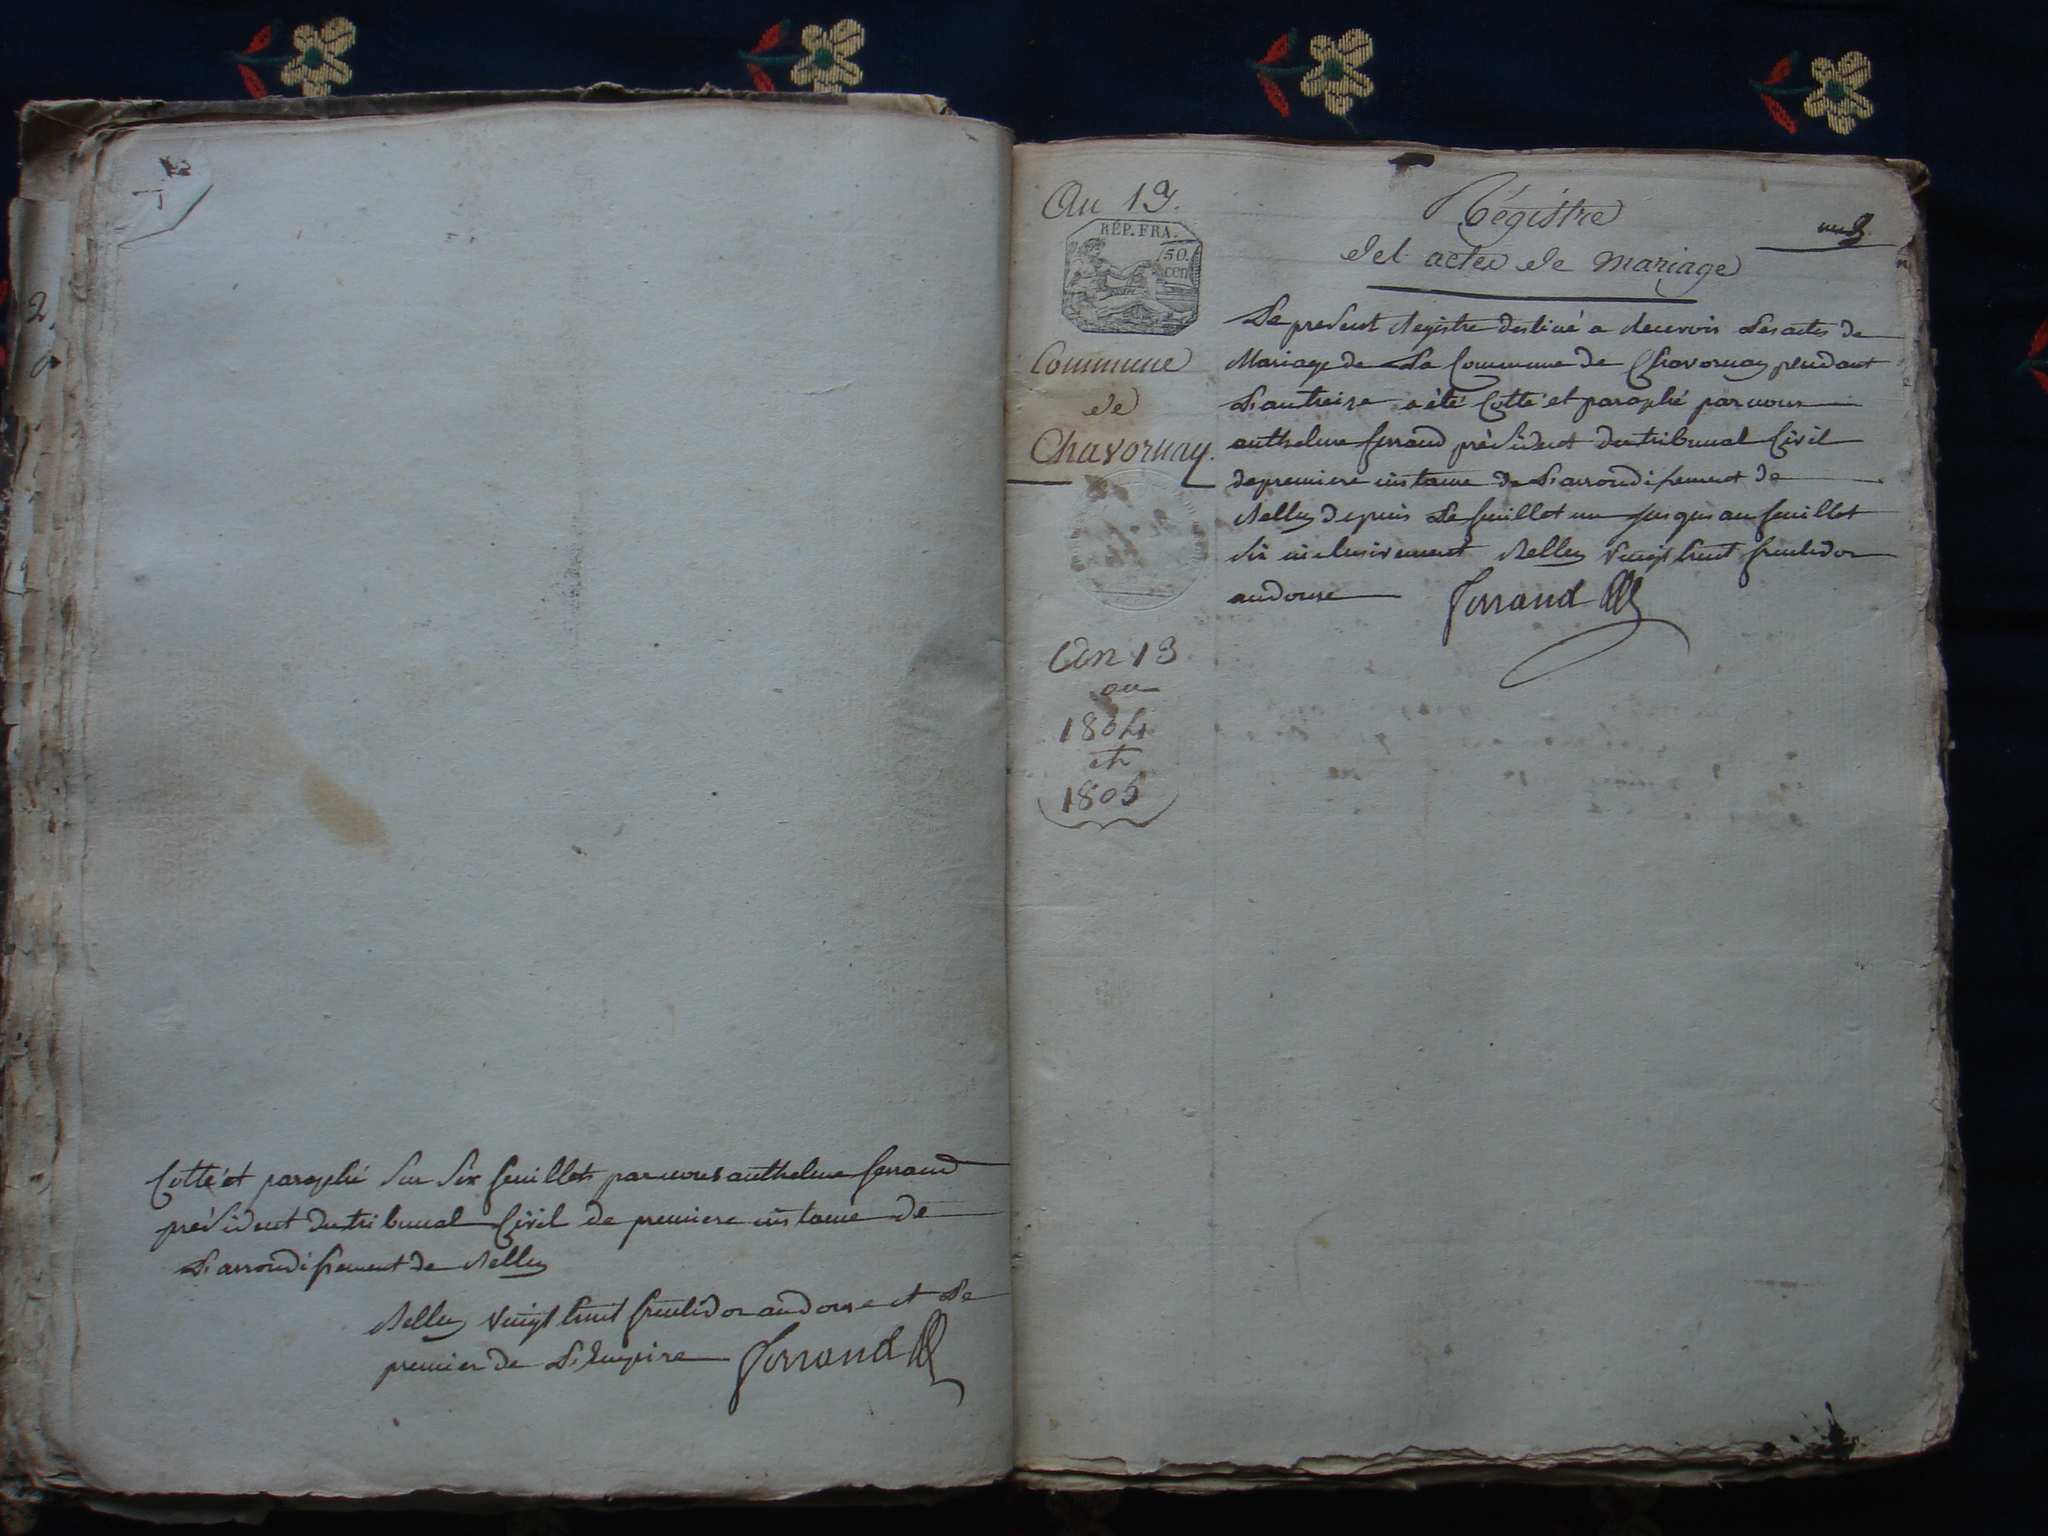 Cotté et paraphé Sur Six feuillets par nous anthelme ferrand
président du tribunal Civil de premiere instance de
L'arrondissement de Belley
Belley vingt huit fructidor an douze et Le
premier de L'Empire Ferrand
An 13.
RÉP. FRA.
50.
cen
Commune
de
Chavornay.
An 13
ou
1804
et
1805
Régistre
des actes de mariage
Le present Registre destiné a Recevoir Les actes de
Mariage de La Commune de Chavornay pendant
L'an treize a été Cotté et paraphé par nous
anthelme ferrand président du tribunal Civil
de premiere instance de L'arrondissement de
Belley depuis Le feuillet un jusques au feuillet
Six inclusivement Belley vingt huit fructidor
an douze Ferrand